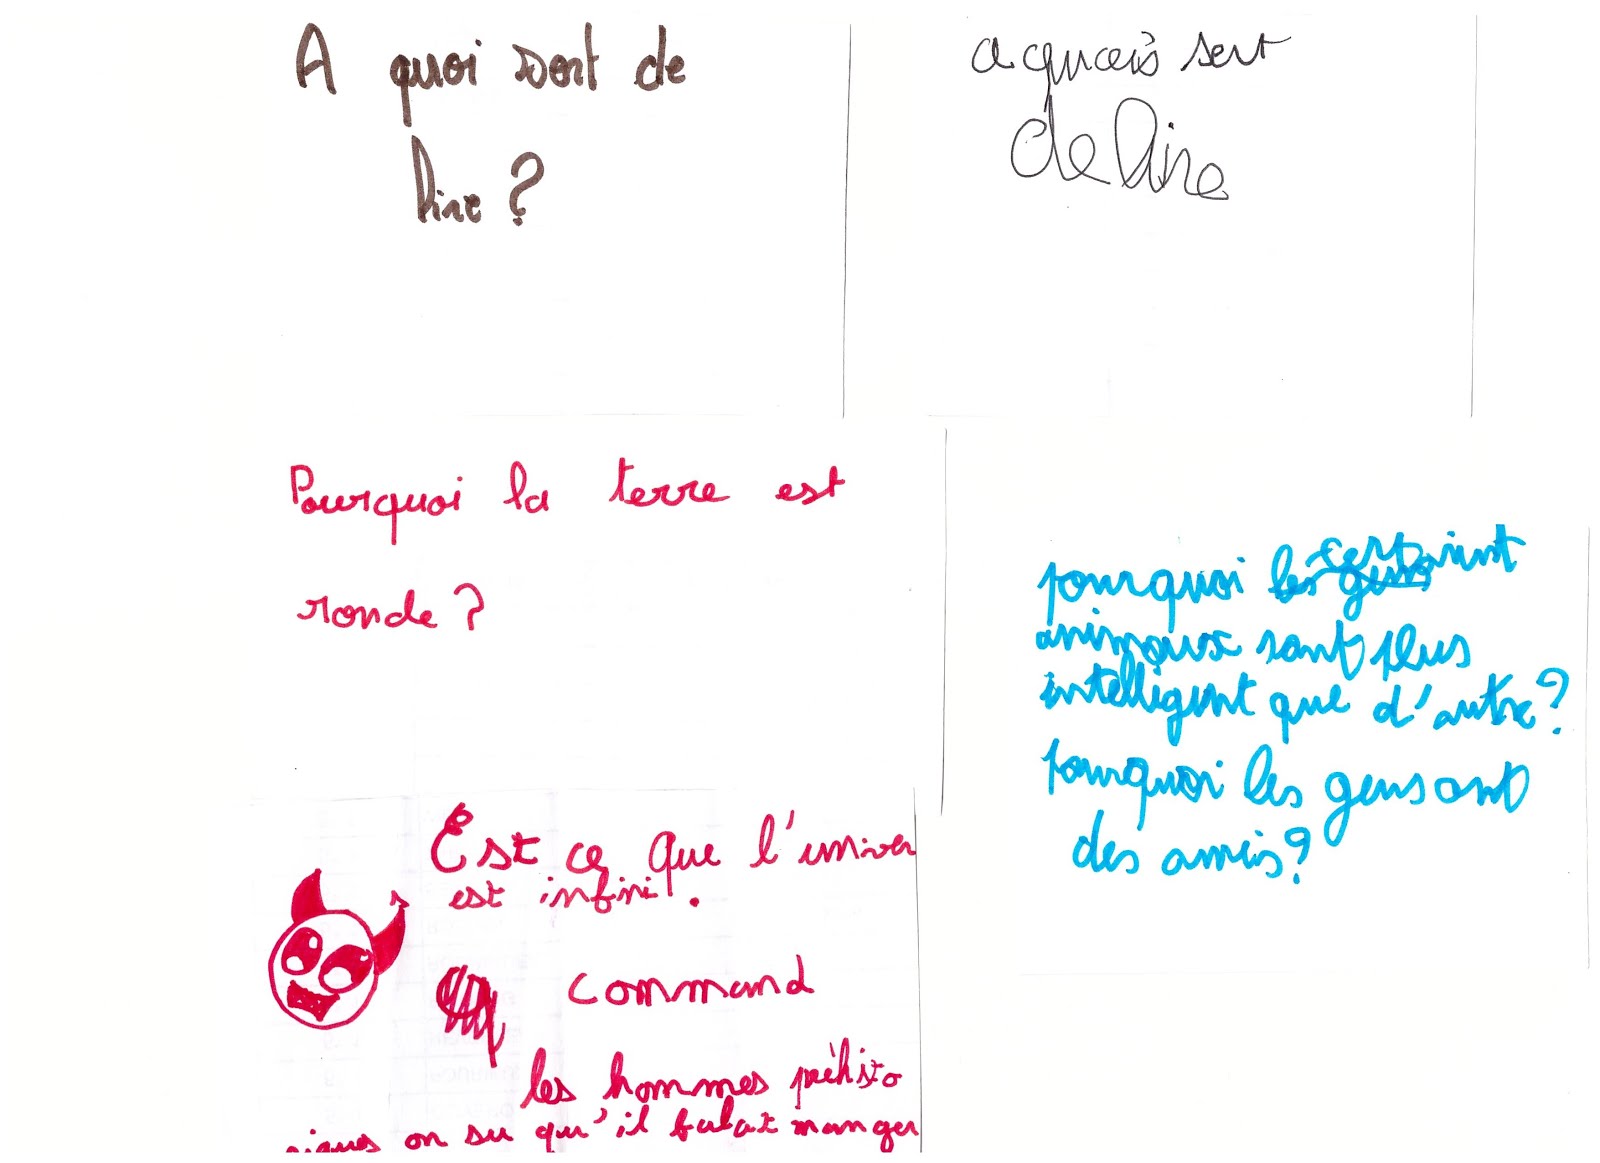 A quoi sert de
lire ?
a quois sert
de lire
Pourquoi la terre est
ronde ?
pourquoi les gens certaint
animaux sont plus
intelligent que d'autre ?
pourquoi les gens ont
des amis ?
Est ce que l'univer
s
est infini .
command
les hommes préhisto
riques on su qu'il falait manger